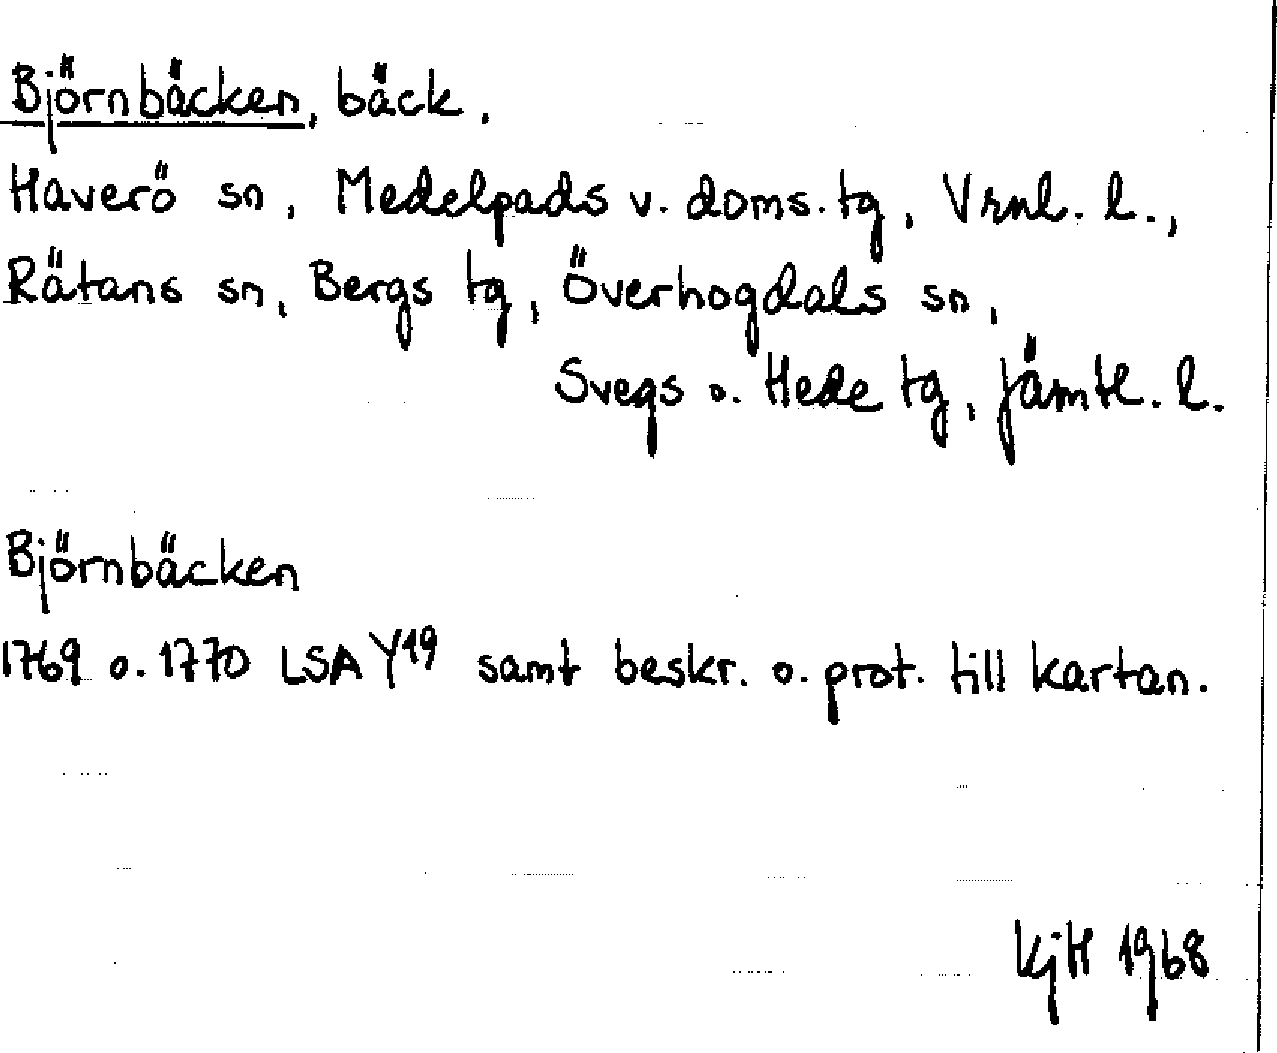 Björnbäcken, bäck.
Haverö sn, Medelpads v. doms. tg, Vrnl. l.,
Rätans sn, Bergs tg, Överhogdals sn,
Svegs o. Hede tg, Jämtl. l.
Björnbäcken
1769 o. 1770 LSA Y19 samt beskr. o. prot. till kartan.
KjH 1968